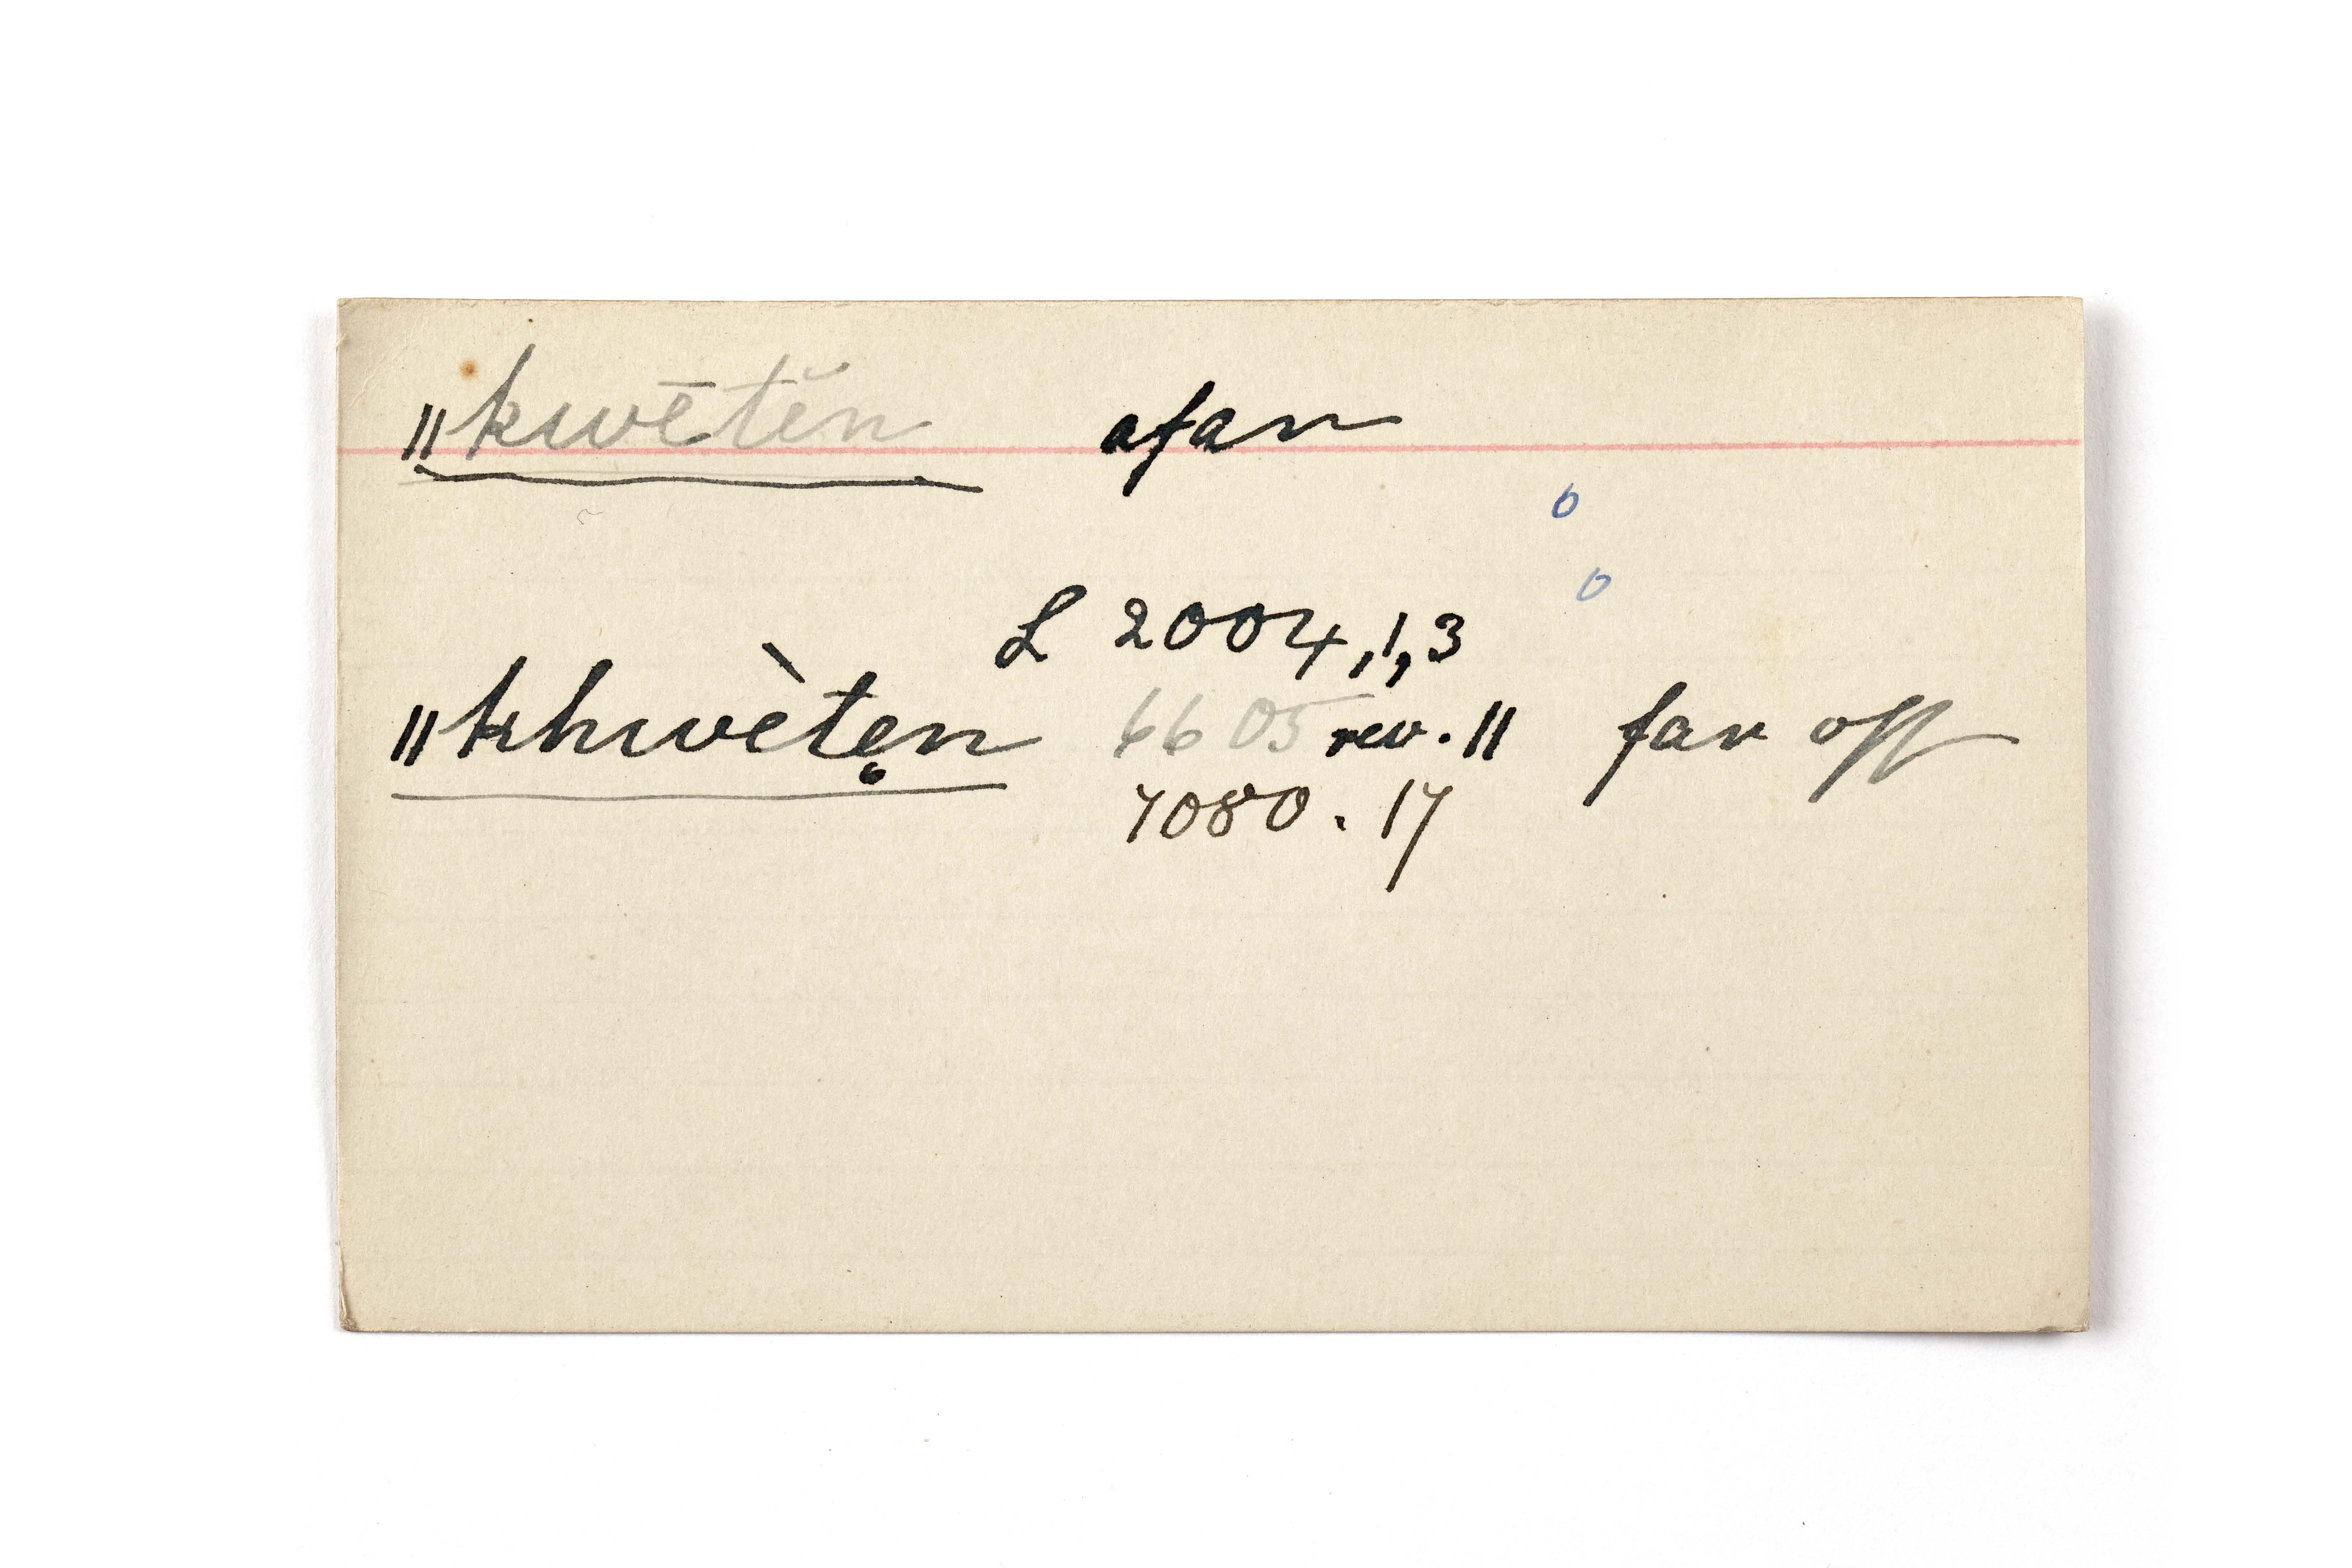 ǁkwētĕn afar
L 2004,1,3
ǁkhwète̥n 6605 rev. 11 far off
7080. 17